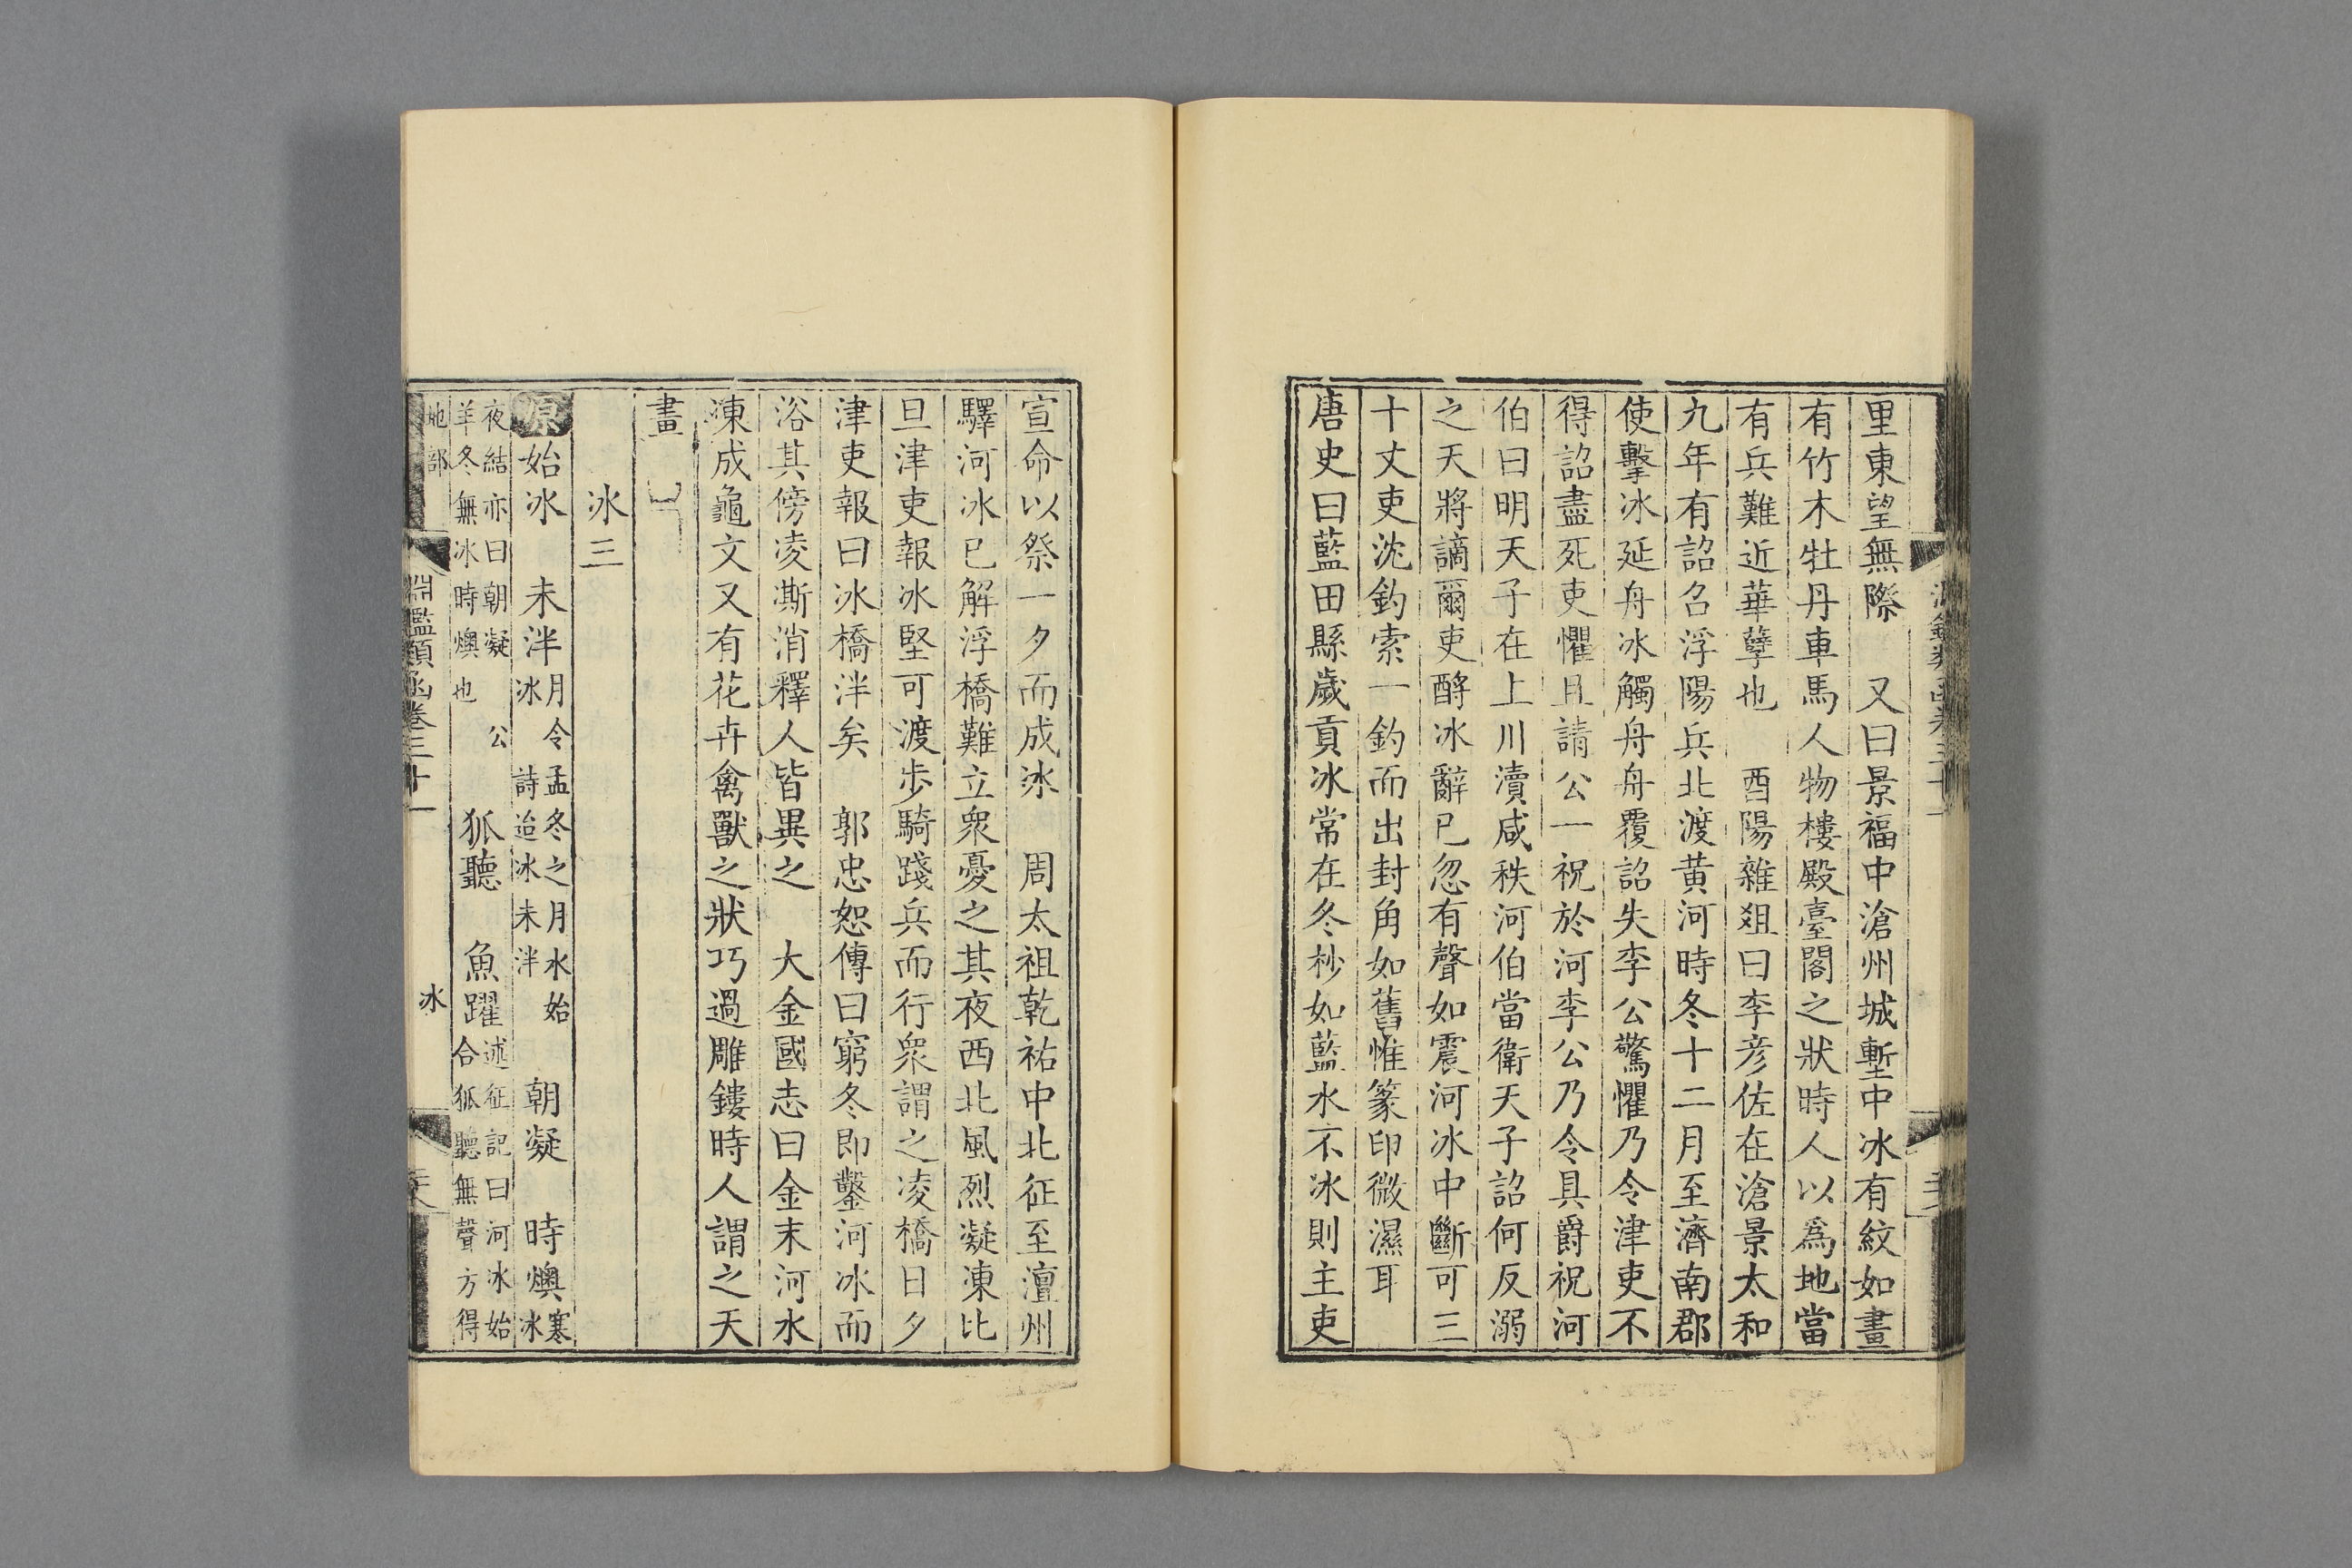 里東望無際　又曰景福中滄州城塹中冰有紋如畫
有竹木牡丹車馬人物樓殿臺閣之狀時人以爲地當
有兵難近華孽也　酉陽雜爼曰李彦佐在滄景太和
九年有詔召浮陽兵北渡黄河時冬十二月至濟南郡
使擊冰延舟冰觸舟舟覆詔失李公驚懼乃令津吏不
得詔盡死吏懼且請公一祝於河李公乃令具爵祝河
伯曰明天子在上川瀆咸秩河伯當衛天子詔何反溺
之天將謫爾吏酹冰辭已忽有聲如震河冰中斷可三
十丈吏沈鈎索一釣而出封角如舊惟篆印微濕耳
唐史曰藍田縣歲貢冰常在冬杪如藍水不冰則主吏
宣命以祭一夕而成冰　周太祖乾祐中北征至澶州
驛河冰已解浮橋難立衆憂之其夜西北風烈凝凍比
旦津吏報冰堅可渡步騎踐兵而行衆謂之凌橋日夕
津吏報曰冰橋泮矣　郭忠恕傳曰窮冬即鑿河冰而
浴其傍凌澌消釋人皆異之　大金國志曰金末河水
凍成龜文又有花卉禽獸之狀巧過雕鏤時人謂之天
畫
冰三
原始冰　未泮月令孟冬之月水始冰　詩迨冰未泮　朝凝　時燠寒冰
夜結亦曰朝凝　公羊冬無冰時燠也　狐聽　魚躍述征記曰河冰始合狐聽無聲方得
地部
淵鑑類函卷三十一
冰